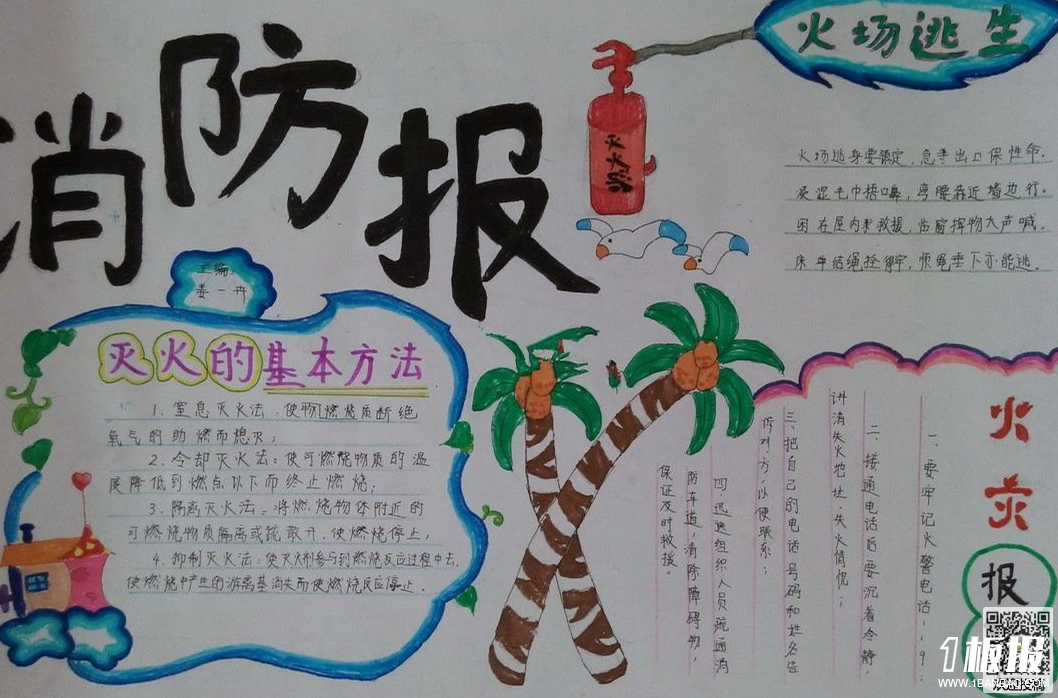 消防报
主编:
姜一卉
灭火器
火场逃生
火场逃身要镇定,急手出卫保性命.
浸湿毛巾捂口鼻,弯腰靠近墙边行.
困在屋内求救援,临窗挥物大声喊.
床单结绳拴得牢,顺绳垂下亦能逃.
灭火的基本方法
1.窒息灭火法:使物燃烧质断绝
氧气的助燃而熄灭;
2.冷却灭火法:使可燃烧物质的温
度降低到燃点以下而终止燃烧;
3.隔离灭火法:将燃烧物体附近的
可燃烧物质隔离或疏散开,使燃烧停止,
4.抑制灭火法:使灭火剂参与到燃烧反应过程中去,
使燃烧中产生的游离基消失而使燃烧反应停止.
火灾
报
一、要牢记火警电话119
二、接通电话后要沉着冷静,
讲清失火地址,失火情况;
三、把自己的电话号码和姓名告
诉对方,以便联系;
四、迅速组织人员疏通消
防车道,清除障碍物,
保证及时救援。
1板报
WWW.1BANBAO.COM
欢迎投稿